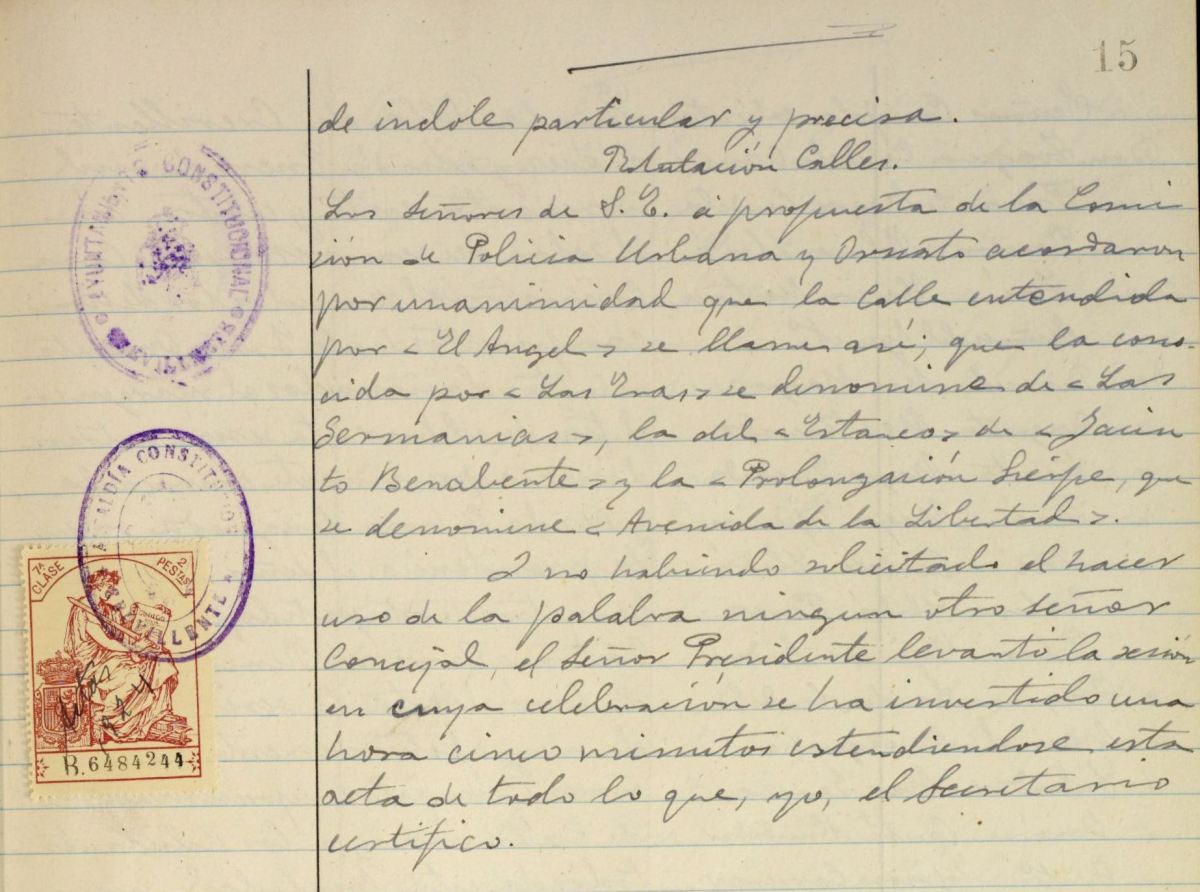 15
de indole particular y precisa.
Rotulación Calles.
Los Señores de S. E. a propuesta de la Comi
sión de Policia Urbana y Ornato acordaron
por unanimidad que la Calle entendida
por «El Angel» se llame así; que la cono-
cida por «Las Eras» se denomine de «Las
Germanias», la del «Estanco» de «Jacin
to Benabente» y la «Prolongación Sierpe, que
se denomine «Avenida de la Libertad».
I no habiendo solicitado el hacer
uso de la palabra ningun otro señor
Concejal, el Señor Presidente levanto la sesión
en cuya celebración se ha investido una
hora cinco minutos estendiendose esta
acta de todo lo que, yo, el Secretario
certifico.
AYUNTAMIENTO CONSTITUCIONAL
ALCALDÍA CONSTITUCION
CREVILLENTE
7ª CLASE
2 PESTAS
Actas
1924
B.6484244